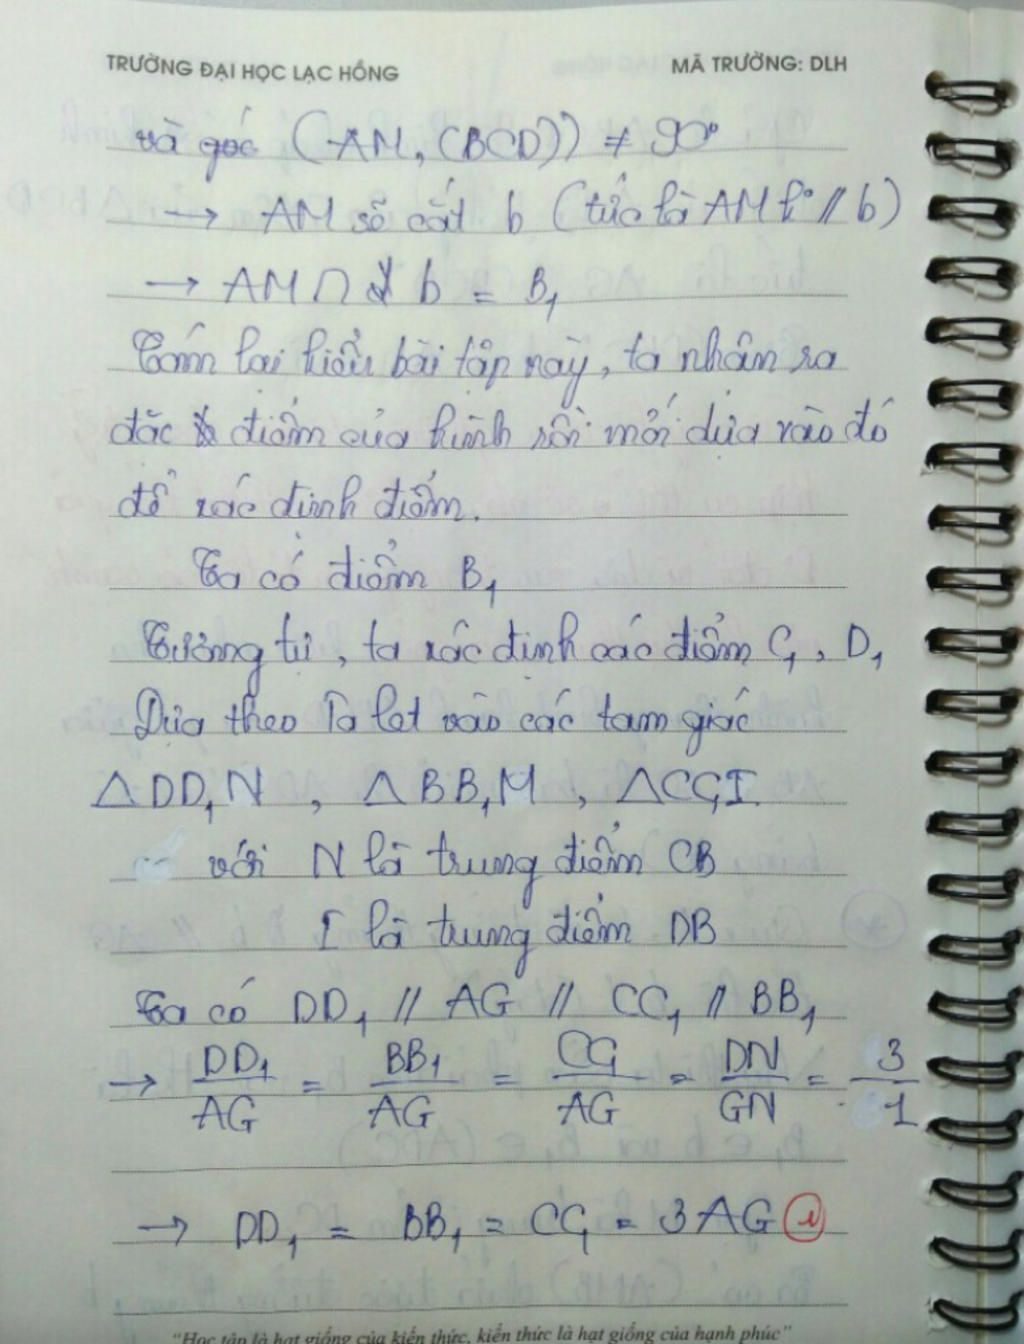 TRƯỜNG ĐẠI HỌC LẠC HỒNG MÃ TRƯỜNG: DLH
và góc (AM, (BCD)) ≠ 90°
→ AM sẽ cắt b (tức là AM k° // b)
→ AM ∩ b = B₁
Tóm lại kiểu bài tập này, ta nhận ra
đặc điểm của hình rồi mới dựa vào đó
để xác định điểm.
Ta có điểm B₁
Tương tự, ta xác định các điểm C₁, D₁
Dựa theo Ta let vào các tam giác
△DD₁N , △BB₁M , △CC₁I
với N là trung điểm CB
I là trung điểm DB
Ta có DD₁ // AG // CC₁ // BB₁
→ DD₁/AG = BB₁/AG = CC₁/AG = DN/GN = 3/1
→ DD₁ = BB₁ = CC₁ = 3AG
"Học tập là hạt giống của kiến thức, kiến thức là hạt giống của hạnh phúc"